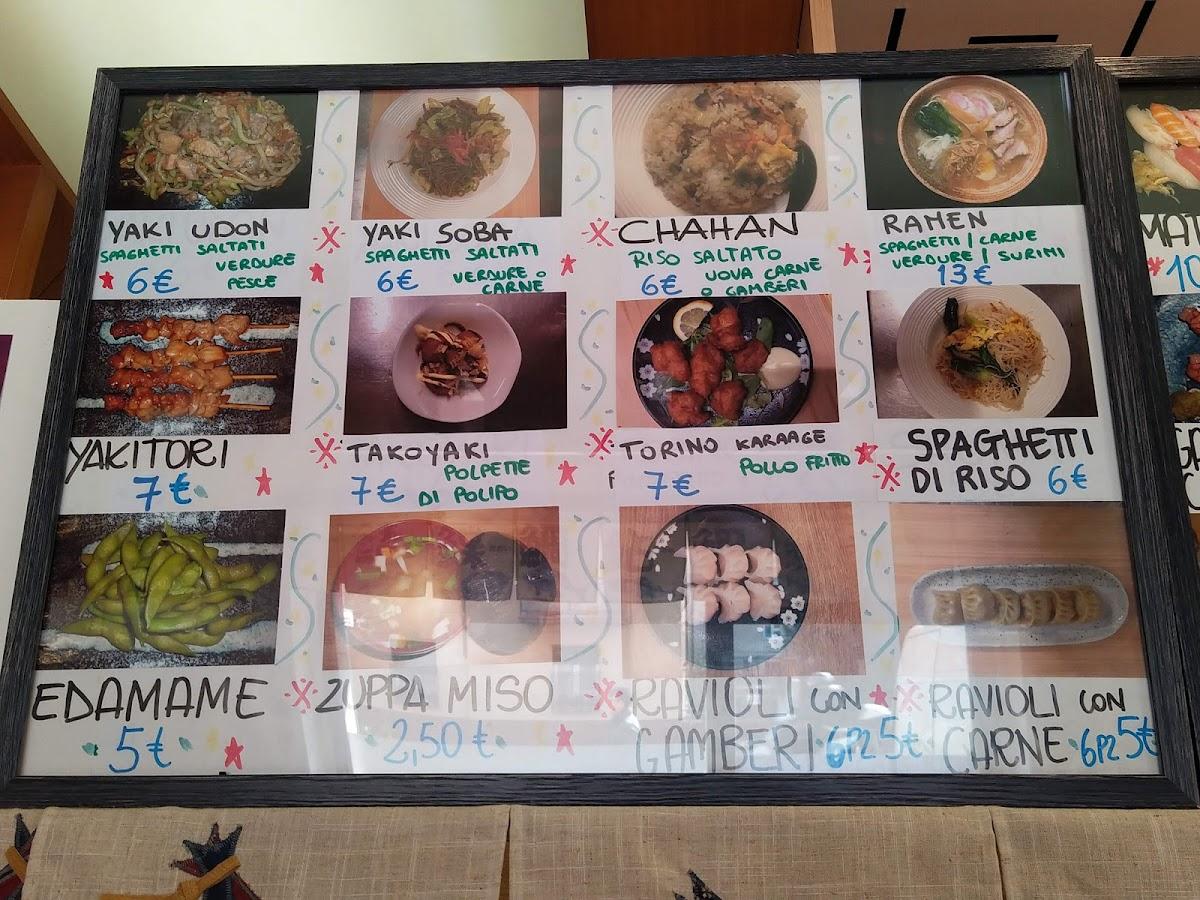 YAKI UDON
SPAGHETTI SALTATI
VERDURE
6€ PESCE
YAKI SOBA
SPAGHETTI SALTATI
6€ VERDURE O
CARNE
CHAHAN
RISO SALTATO
UOVA CARNE
6€ O GAMBERI
RAMEN
SPAGHETTI / CARNE
VERDURE / SURIMI
13€
YAKITORI
7€
TAKOYAKI
POLPETTE
7€ DI POLIPO
TORINO KARAAGE
POLLO FRITTO
7€
SPAGHETTI
DI RISO 6€
EDAMAME
5€
ZUPPA MISO
2,50€
RAVIOLI CON
GAMBERI 6PZ 5€
RAVIOLI CON
CARNE 6PZ 5€